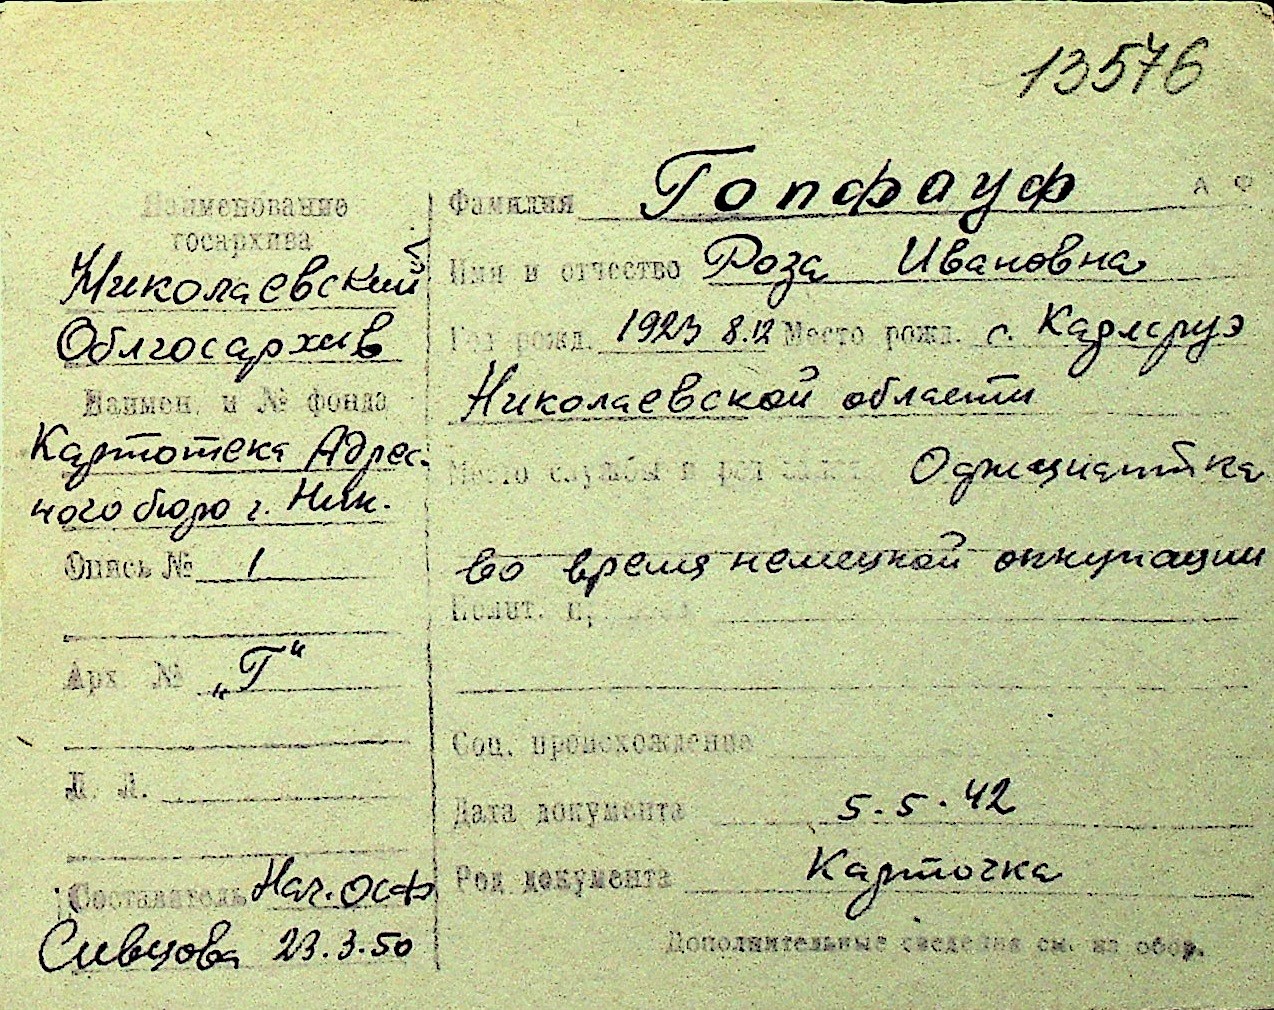 13576
Наименование
госархива
Николаевский
Облгосархив
Наимен. и № фонда
Картотека Адрес-
ного бюро г. Ник.
Опись № 1
Арх. № „Г“
Л. Л.
Составитель Нач. ОСФ
Сивцова 23.3.50
А Ф
Фамилия Гопфауф
Имя и отчество Роза Ивановна
Год рожд. 1923 8.12 Место рожд. с. Карлсруэ
Николаевской области
Место службы и род занят. Официантка
во время немецкой оккупации
Полит.
Соц. происхождение
Дата документа 5.5.42
Род документа Карточка
Дополнительные сведения см. на обор.